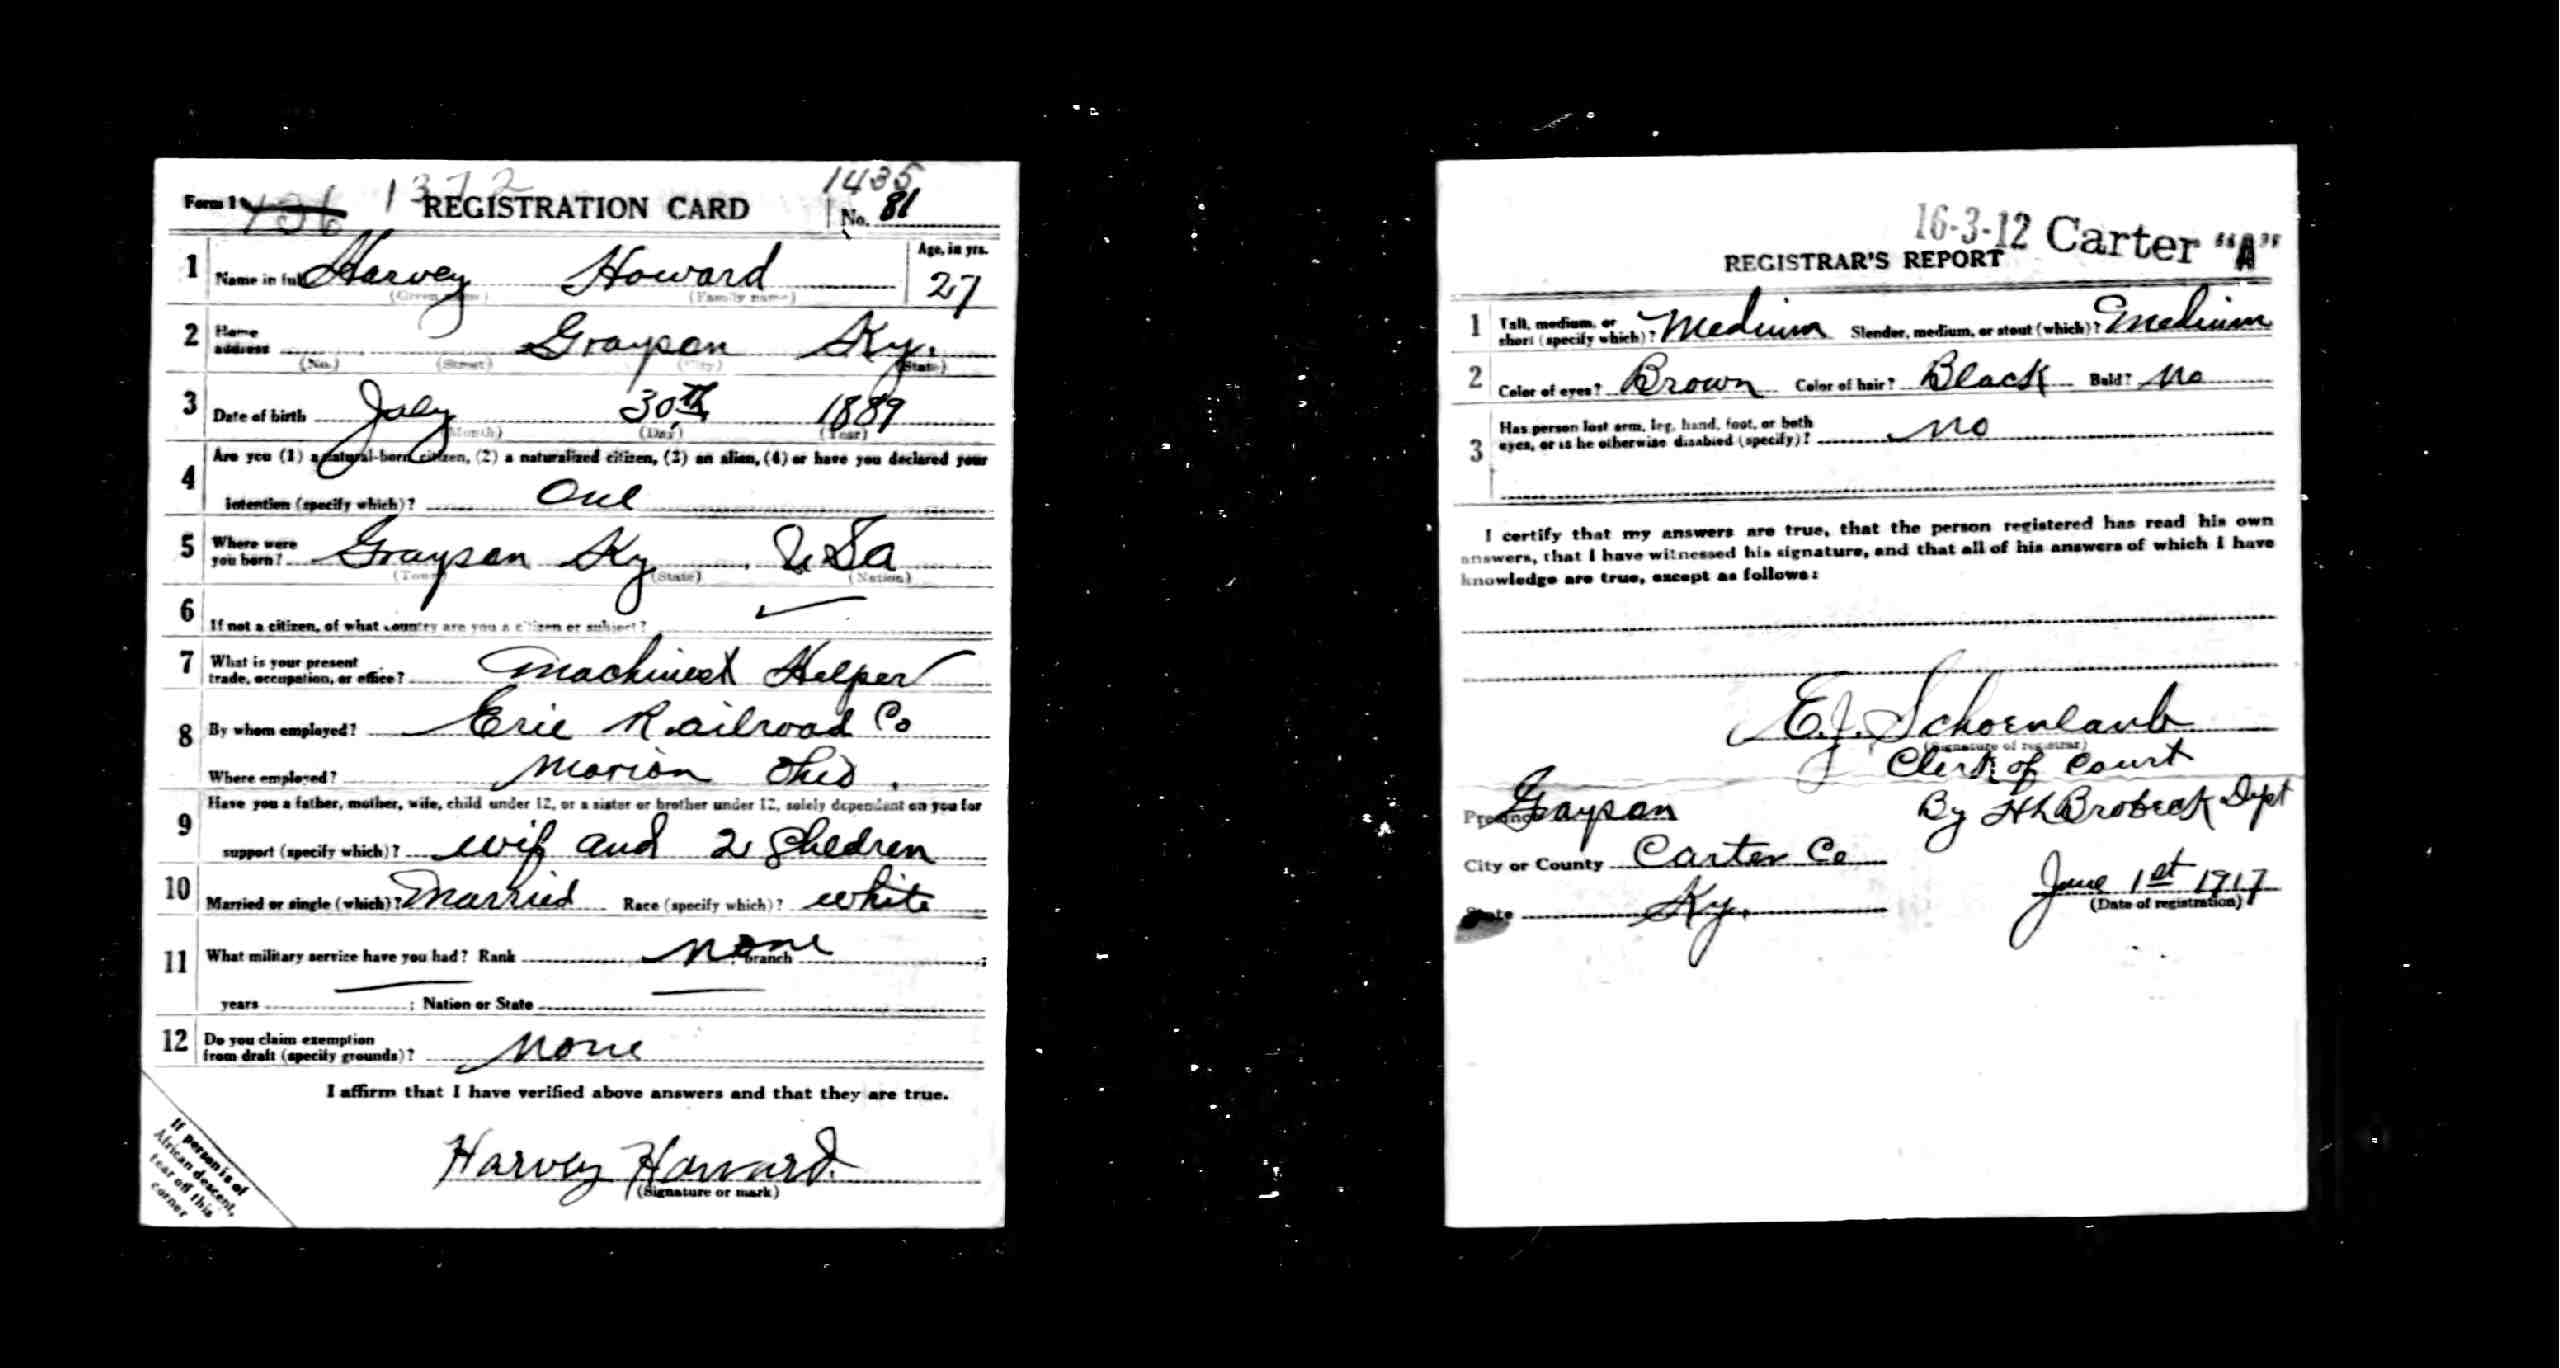 1372 1435
Form 1 136 REGISTRATION CARD No. 81
1 Name in full Harvey Howard Age, in yrs.
(Given name) (Family name) 27
2 Home address Grayson Ky.
(No.) (Street) (City) (State)
3 Date of birth July 30th 1889
(Month) (Day) (Year)
4 Are you (1) a natural-born citizen, (2) a naturalized citizen, (3) an alien, (4) or have you declared your
intention (specify which)? One
5 Where were you born? Grayson Ky USa
(Town) (State) (Nation)
6 If not a citizen, of what country are you a citizen or subject?
7 What is your present trade, occupation, or office? Machinest Helper
8 By whom employed? Erie Railroad Co
Where employed? Marion Ohio.
9 Have you a father, mother, wife, child under 12, or a sister or brother under 12, solely dependent on you for
support (specify which)? wif and 2 Chedren
10 Married or single (which)? Married Race (specify which)? white
11 What military service have you had? Rank none branch ;
years ; Nation or State
12 Do you claim exemption from draft (specify grounds)? None
I affirm that I have verified above answers and that they are true.
Harvey Howard.
(Signature or mark)
If person is of
African descent,
tear off this
corner
16-3-12 Carter "A"
REGISTRAR'S REPORT
1 Tall, medium, or short (specify which)? Medium Slender, medium, or stout (which)? Medium
2 Color of eyes? Brown Color of hair? Black Bald? No
3 Has person lost arm, leg, hand, foot, or both
eyes, or is he otherwise disabled (specify)? No
I certify that my answers are true, that the person registered has read his own
answers, that I have witnessed his signature, and that all of his answers of which I have
knowledge are true, except as follows:
E.J. Schoenlaub
(Signature of registrar)
Clerk of Court
Precinct Grayson By HL Brobeck Dept
City or County Carter Co
June 1st 1917
State Ky. (Date of registration)